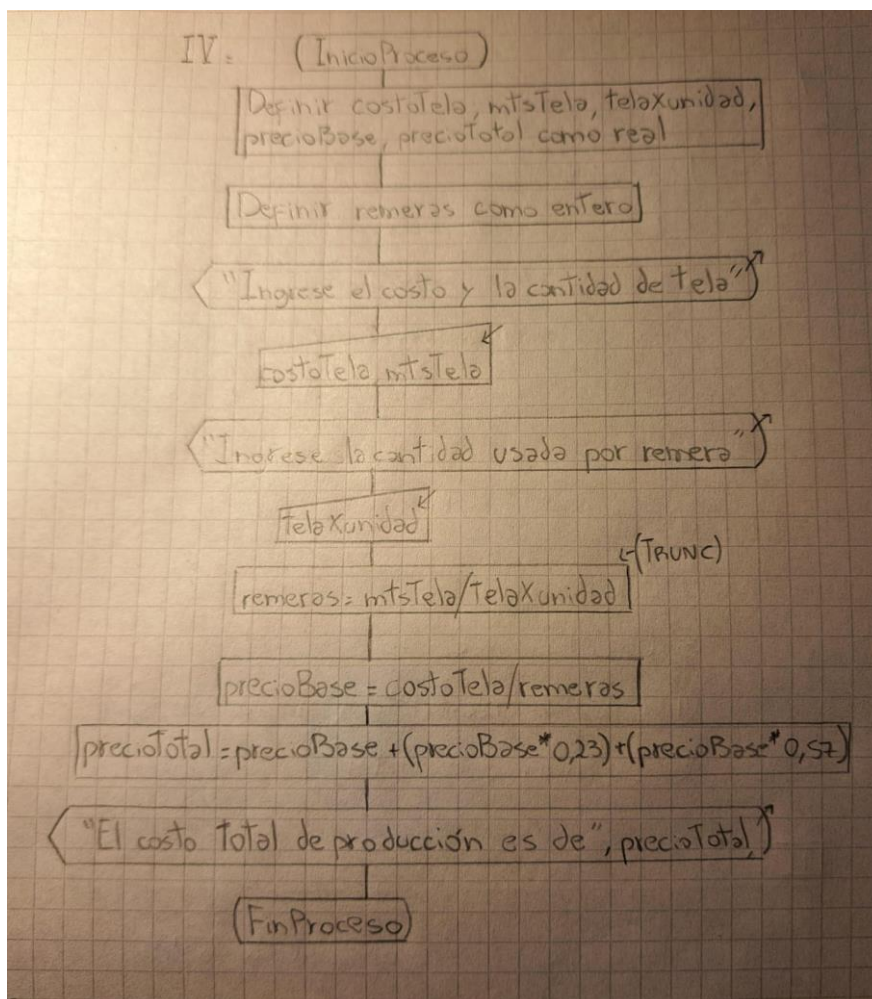 IV: (InicioProceso)
Definir costoTela, mtsTela, telaXunidad,
precioBase, precioTotal como real
Definir remeras como entero
"Ingrese el costo y la cantidad de tela"
costoTela, mtsTela
"Ingrese la cantidad usada por remera"
telaXunidad
(TRUNC)
remeras = mtsTela/telaXunidad
precioBase = costoTela/remeras
precioTotal = precioBase + (precioBase*0,23)+(precioBase*0,57)
"El costo total de producción es de", precioTotal
(FinProceso)